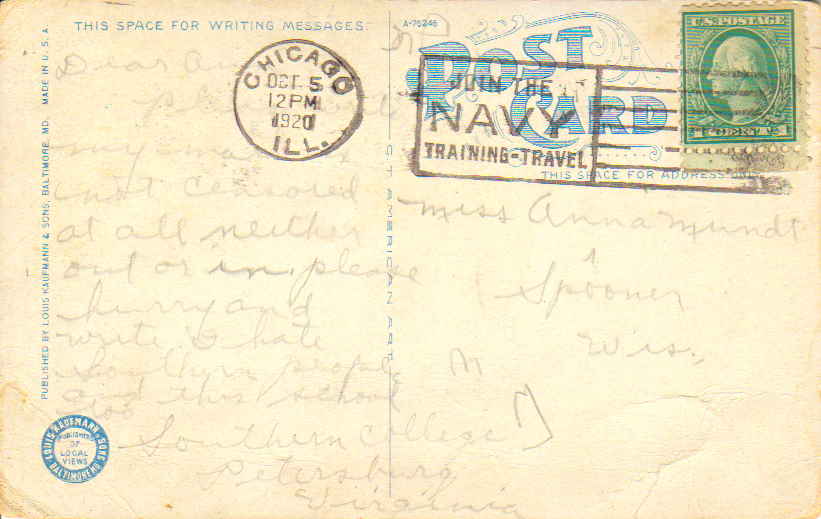 THIS SPACE FOR WRITING MESSAGES.
A-76246
POST CARD
THIS SPACE FOR ADDRESS ONLY
U.S. POSTAGE
1 CENT 1
CHICAGO
OCT 5
12 PM
1920
ILL.
JOIN THE
NAVY
TRAINING-TRAVEL
MADE IN U.S.A
PUBLISHED BY LOUIS KAUFMANN & SONS, BALTIMORE, MD.
AMERICAN ART
LOUIS KAUFMANN & SONS
BALTIMORE MD
PUBLISHERS
OF
LOCAL
VIEWS
Dear
my
not censored
at all neither
out or in. please
hurry and
write I hate
Southern people
and this school
too
Southern College
Petersburg
Virginia
Miss Anna Mundt
Spooner
Wis.